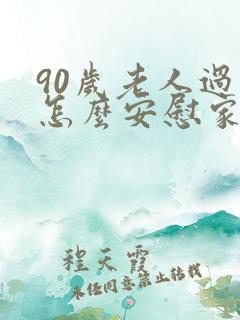 90歲老人過
怎麼安慰家
程天霞
未經同意禁止轉載